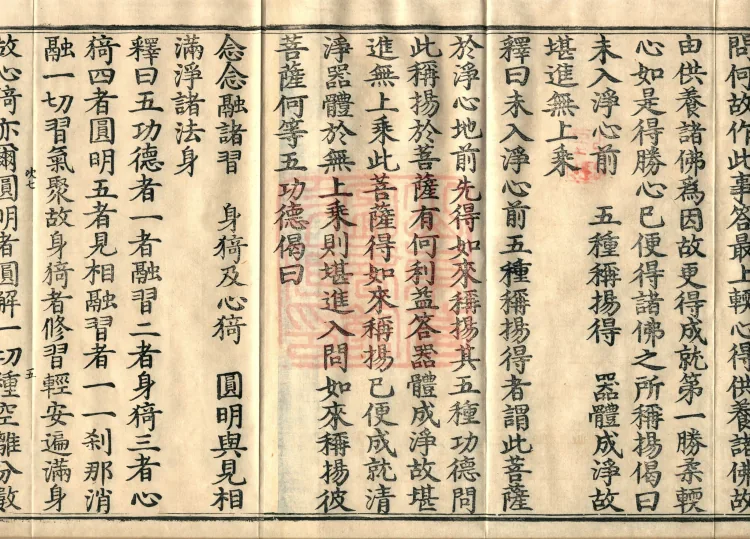 問何故作此事答最上輭心得供養諸佛故
由供養諸佛為因故更得成就第一勝柔輭
心如是得勝心已便得諸佛之所稱揚偈曰
未入淨心前　五種稱揚得　器體成淨故
堪進無上乘
釋曰未入淨心前五種稱揚得者謂此菩薩
於淨心地前先得如來稱揚其五種功德問
此稱揚於菩薩有何利益答器體成淨故堪
進無上乘此菩薩得如來稱揚已便成就清
淨器體於無上乘則堪進入問如來稱揚彼
菩薩何等五功德偈曰
念念融諸習　身猗及心猗　圓明與見相
滿淨諸法身
釋曰五功德者一者融習二者身猗三者心
猗四者圓明五者見相融習者一一剎那消
融一切習氣聚故身猗者修習輕安遍滿身
吹七　五
故心猗亦爾圓明者圓解一切種空離分數